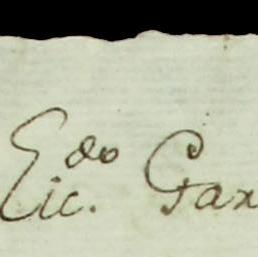 Lic.do Gax